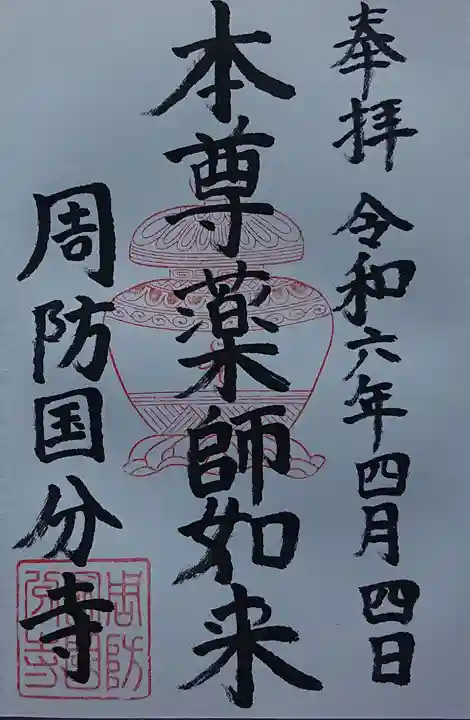 奉拝 令和六年四月四日
本尊薬師如来
周防国分寺
周防國分寺